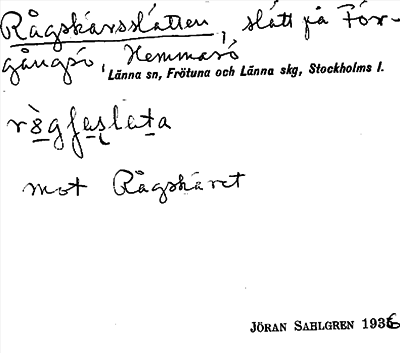 Rågskärsslåtten, slått på För-
gångsö, Hemmarö
Länna sn, Frötuna och Länna skg, Stockholms l.
mot Rågskäret
JÖRAN SAHLGREN 1936